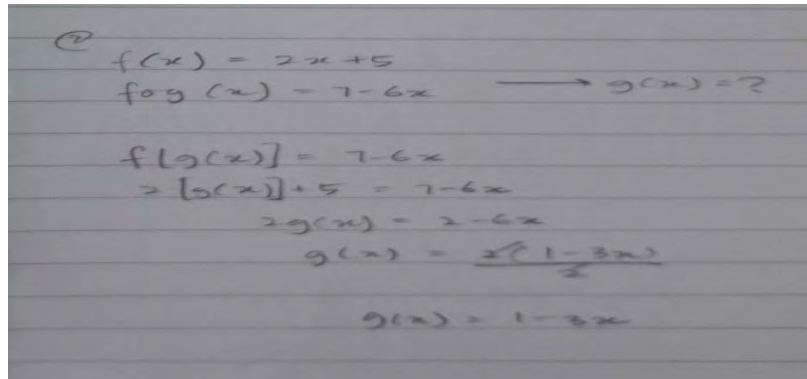 ②
f(x) = 2x + 5
fog (x) = 7 - 6x ⟶ g(x) = ?
f[g(x)] = 7 - 6x
2[g(x)] + 5 = 7 - 6x
2g(x) = 2 - 6x
g(x) = 2(1 - 3x) / 2
g(x) = 1 - 3x